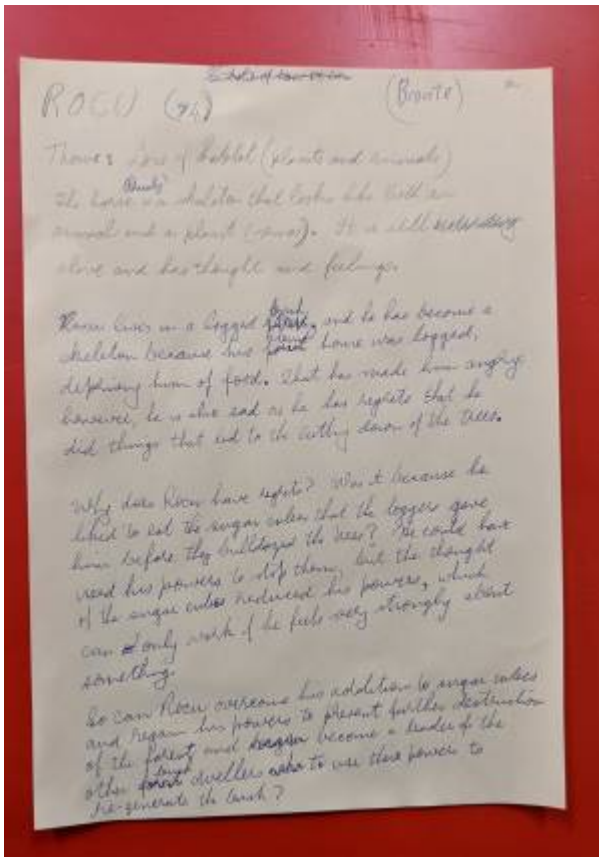 ROCU (Bronte)
Theme: Loss of habitat (plants and animals)
The horse is a skeleton that looks like both an
animal and a plant (). It is still
alive and has thought and feelings.
Rocu lives in a logged bush, and he has become a
skeleton because his home was logged,
depriving him of food. That has made him angry
however, he is also sad as he has regrets that he
did things that led to the cutting down of the trees.
Why does Rocu have regrets? Was it because he
liked to eat the sugar cubes that the loggers gave
him before they bulldozed the trees? He could have
used his powers to stop them, but the thought
of the sugar cubes reduced his powers, which
can only work if he feels very strongly about
something.
So can Rocu overcome his addition to sugar cubes
and regain his powers to prevent further destruction
of the forest and become a leader of the
other bush dwellers to use there powers to
re-generate the bush?